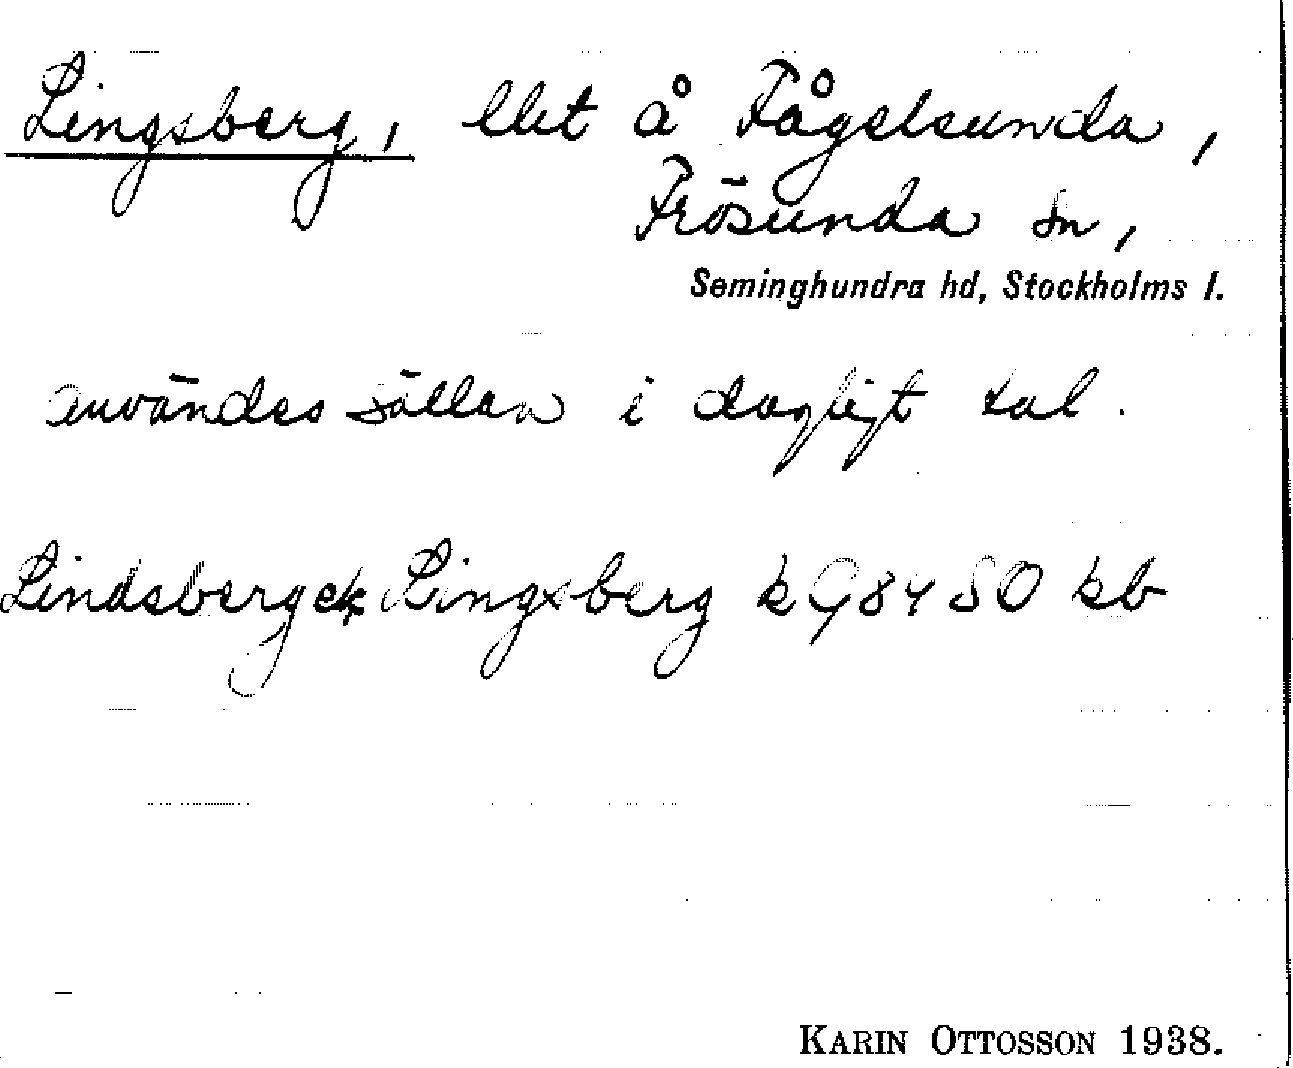 Lingsberg, llet å Fågelsunda,
Frösunda sn,
Seminghundra hd, Stockholms l.
användes sällan i dagligt tal.
Lindsberg ek Lingsberg k G 84 SO kb
KARIN OTTOSSON 1938.